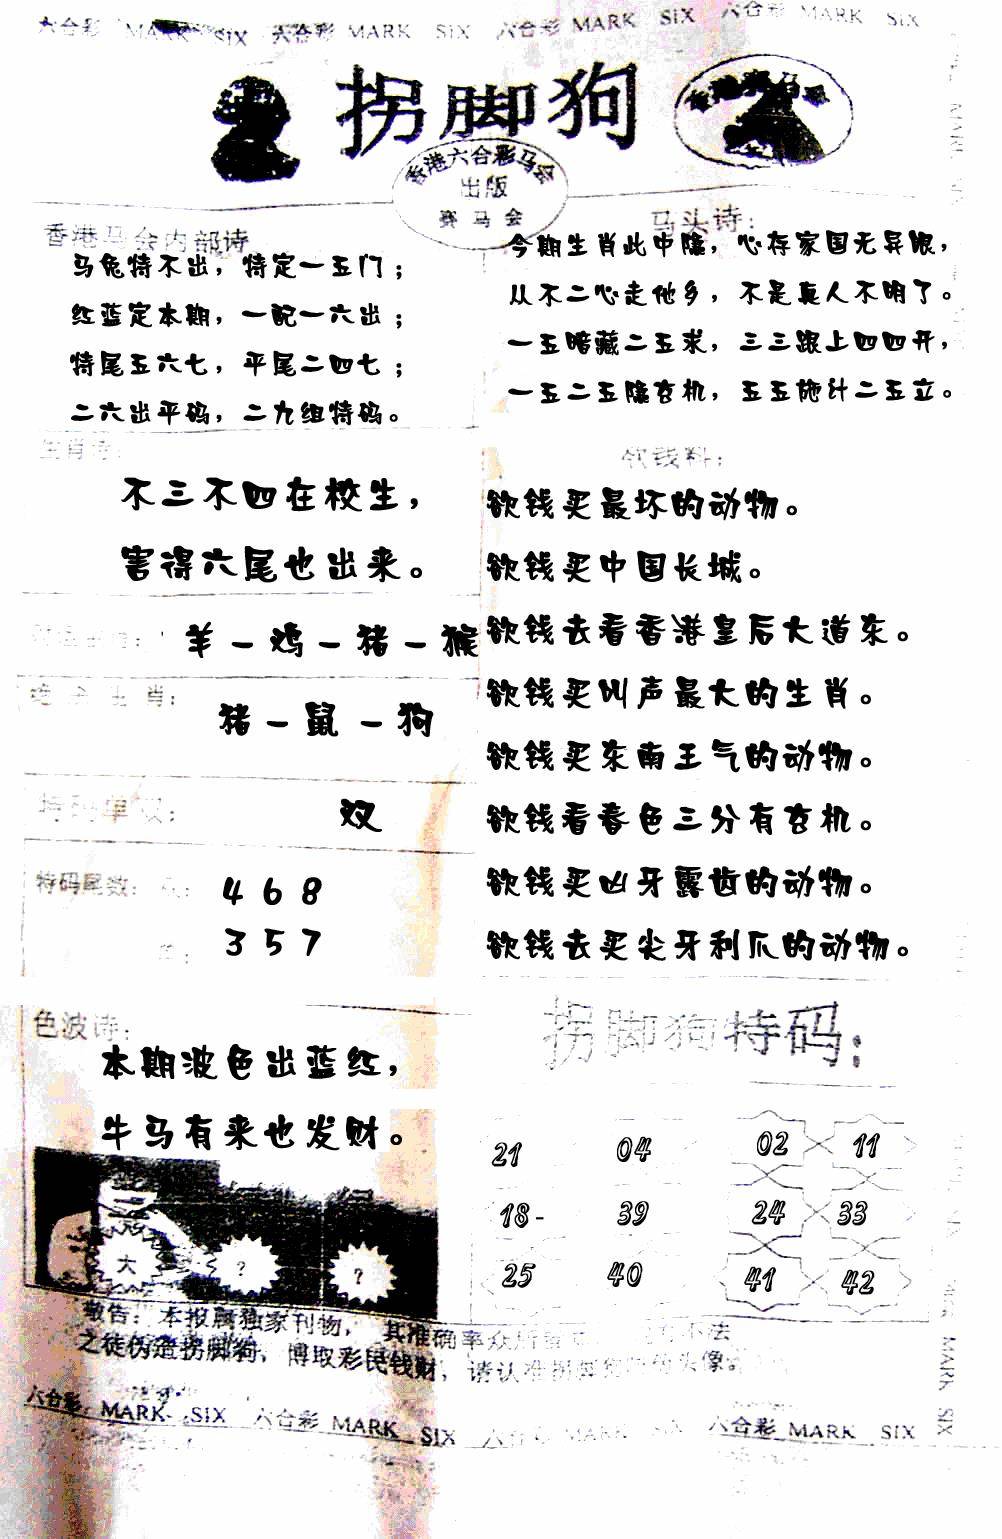 六合彩 MARK SIX 六合彩 MARK SIX 六合彩 MARK SIX 六合彩 MARK SIX
拐脚狗
香港六合彩马会
出版
赛马会
香港马会内部诗
马兔特不出，特定一五门；
红蓝定本期，一配一六出；
特尾五六七，平尾二四七；
二六出平码，二九组特码。
马头诗：
今期生肖此中隐，心存家国无异银，
从不二心走他乡，不是真人不明了。
一五暗藏二五求，三三跟上四四开，
一五二五隐玄机，五五施计二五立。
生肖诗：
不三不四在校生，
害得六尾也出来。
羊－鸡－猪－猴
生肖：
猪－鼠－狗
特码单双：
双
特码尾数：
4 6 8
3 5 7
欲钱料：
欲钱买最坏的动物。
欲钱买中国长城。
欲钱去看香港皇后大道东。
欲钱买叫声最大的生肖。
欲钱买东南王气的动物。
欲钱看春色三分有玄机。
欲钱买凶牙露齿的动物。
欲钱去买尖牙利爪的动物。
色波诗：
本期波色出蓝红，
牛马有来也发财。
大 ? ?
拐脚狗特码：
21 04 02 11
18- 39 24 33
25 40 41 42
敬告：本报属独家刊物，其准确率众所 不法
之徒伪造拐脚狗，博取彩民钱财，请认准拐脚狗 头像。
六合彩 MARK SIX 六合彩 MARK SIX 六合彩 MARK SIX 六合彩 MARK SIX
MARK SIX